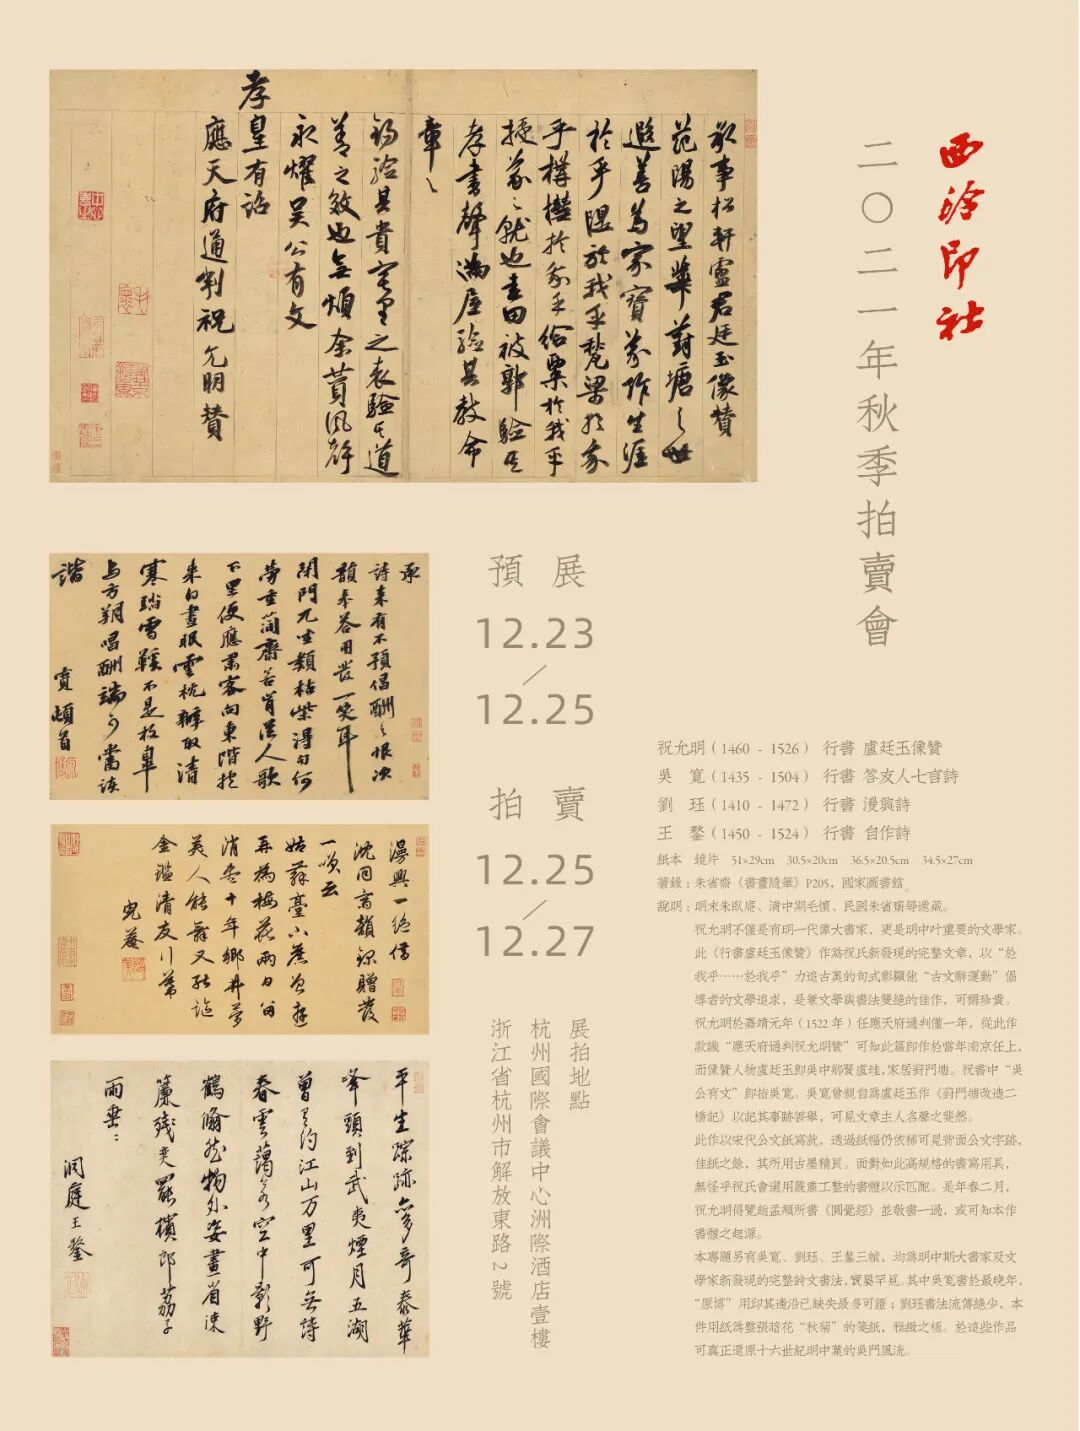 西泠印社
二〇二一年秋季拍賣會
故事松軒盧君廷玉像贊
范陽之望華葑塘之世
遐善為家寶義作生涯
於乎隰於我乎甃梁於我
乎樗櫟於我乎給粟於我乎
授義就也書田被郭驗其
孝書聲滿屋驗其教命
章〻
錫
貴
之表驗其道
善之效也無煩余蕢風解
永燿吳公有文
孝皇有詔
應天府通判祝允明贊
承
詩來有不預倡酬之恨次
韻奉答用發一笑耳
閉門兀坐類枯柴得句何
勞重簡齋若肯從人歌
下里便應肅客向東階抱
來白晝眠雲枕辦取清
寒踏雪鞵不是枚皐
與方朔唱酬端可當詼
諧
寬頓首
漫興一絕借
沈同齋韻錄贈發
一笑云
姑蘇臺下舊曾遊
再為梅花兩日留
消盡十年鄉井夢
美人能舞又能謳
金溫清友川弟
完菴
平生蹤跡亦多奇泰華
峰頭到武夷煙月五湖
曾有約江山萬里可無詩
春雲藹藹空中影野
鶴翛然物外姿畫省凍
簾殘夾罷檳郎荔子
雨垂〻
洞庭王鏊
預展
12.23
/
12.25
拍賣
12.25
/
12.27
展拍地點
杭州國際會議中心洲際酒店壹樓
浙江省杭州市解放東路2號
祝允明（1460 - 1526） 行書 盧廷玉像贊
吳　寬（1435 - 1504） 行書 答友人七言詩
劉　珏（1410 - 1472） 行書 漫興詩
王　鏊（1450 - 1524） 行書 自作詩
紙本 鏡片 51×29cm 30.5×20cm 36.5×20.5cm 34.5×27cm
著錄：朱省齋《書畫隨筆》P205，國家圖書館。
說明：明末朱臥庵、清中期毛懷、民國朱省齋等遞藏。
祝允明不僅是有明一代偉大書家，更是明中叶重要的文學家。
此《行書盧廷玉像贊》作為祝氏新發現的完整文章，以“於
我乎……於我乎”力追古奧的句式彰顯他“古文辭運動”倡
導者的文學追求，是兼文學與書法雙絕的佳作，可稱珍貴。
祝允明於嘉靖元年（1522年）任應天府通判僅一年，從此作
款識“應天府通判祝允明贊”可知此篇即作於當年南京任上，
而像贊人物盧廷玉即吳中鄉賢盧珪，家居葑門塘。祝書中“吳
公有文”即指吳寬。吳寬曾親自為盧廷玉作《葑門塘改造二
橋記》以記其事跡善舉，可見文章主人名聲之斐然。
此作以宋代公文紙寫就，透過紙幅仍依稀可見背面公文字跡，
佳紙之餘，其所用古墨精良。面對如此高規格的書寫用具，
無怪乎祝氏會選用嚴肅工整的書體以示匹配。是年春二月，
祝允明得覽趙孟頫所書《圓覺經》並敬書一過，或可知本作
書體之起源。
本專題另有吳寬、劉珏、王鏊三幀，均為明中期大書家及文
學家新發現的完整詩文書法，實屬罕見。其中吳寬書於最晚年，
“原博”用印其邊沿已缺失最多可證；劉珏書法流傳絕少，本
件用紙為整張暗花“秋菊”的箋紙，雅緻之極。於這些作品
可真正還原十六世紀明中葉的吳門風流。